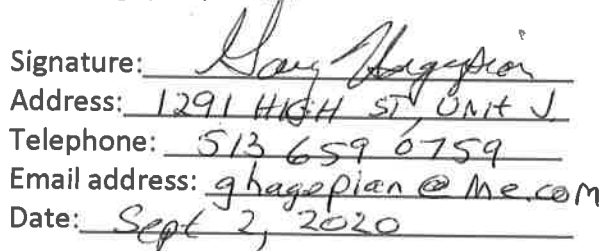 Signature: Gary Hagopian
Address: 1291 HIGH ST, UNIT J
Telephone: 513 659 0759
Email address: ghagopian@me.com
Date: Sept 2, 2020